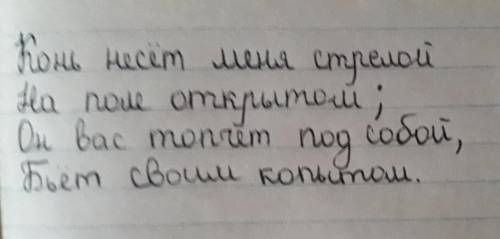 Конь несёт меня стрелой
На поле открытом;
Он вас топчет под собой,
Бьёт своим копытом.